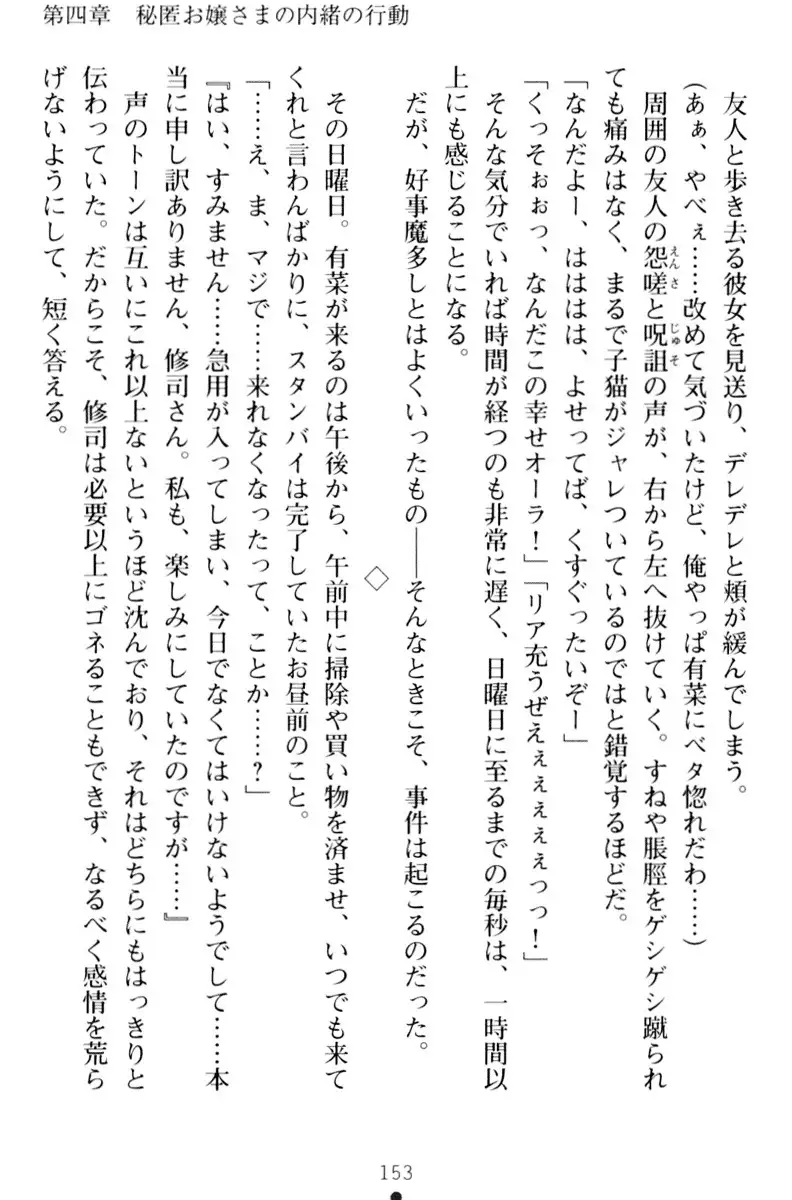 第四章　秘匿お嬢さまの内緒の行動
友人と歩き去る彼女を見送り、デレデレと頬が緩んでしまう。
（あぁ、やべぇ……改めて気づいたけど、俺やっぱ有菜にベタ惚れだわ……）
周囲の友人の怨嗟と呪詛の声が、右から左へ抜けていく。すねや脹脛をゲシゲシ蹴られ
ても痛みはなく、まるで子猫がジャレついているのではと錯覚するほどだ。
「なんだよー、はははは、よせってば、くすぐったいぞー」
「くっそぉぉっ、なんだこの幸せオーラ！」「リア充うぜえぇぇぇぇぇっっ！」
そんな気分でいれば時間が経つのも非常に遅く、日曜日に至るまでの毎秒は、一時間以
上にも感じることになる。
だが、好事魔多しとはよくいったもの――そんなときこそ、事件は起こるのだった。
◇
その日曜日。有菜が来るのは午後から、午前中に掃除や買い物を済ませ、いつでも来て
くれと言わんばかりに、スタンバイは完了していたお昼前のこと。
「……え、ま、マジで……来れなくなったって、ことか……？」
『はい、すみません……急用が入ってしまい、今日でなくてはいけないようでして……本
当に申し訳ありません、修司さん。私も、楽しみにしていたのですが……』
声のトーンは互いにこれ以上ないというほど沈んでおり、それはどちらにもはっきりと
伝わっていた。だからこそ、修司は必要以上にゴネることもできず、なるべく感情を荒ら
げないようにして、短く答える。
153